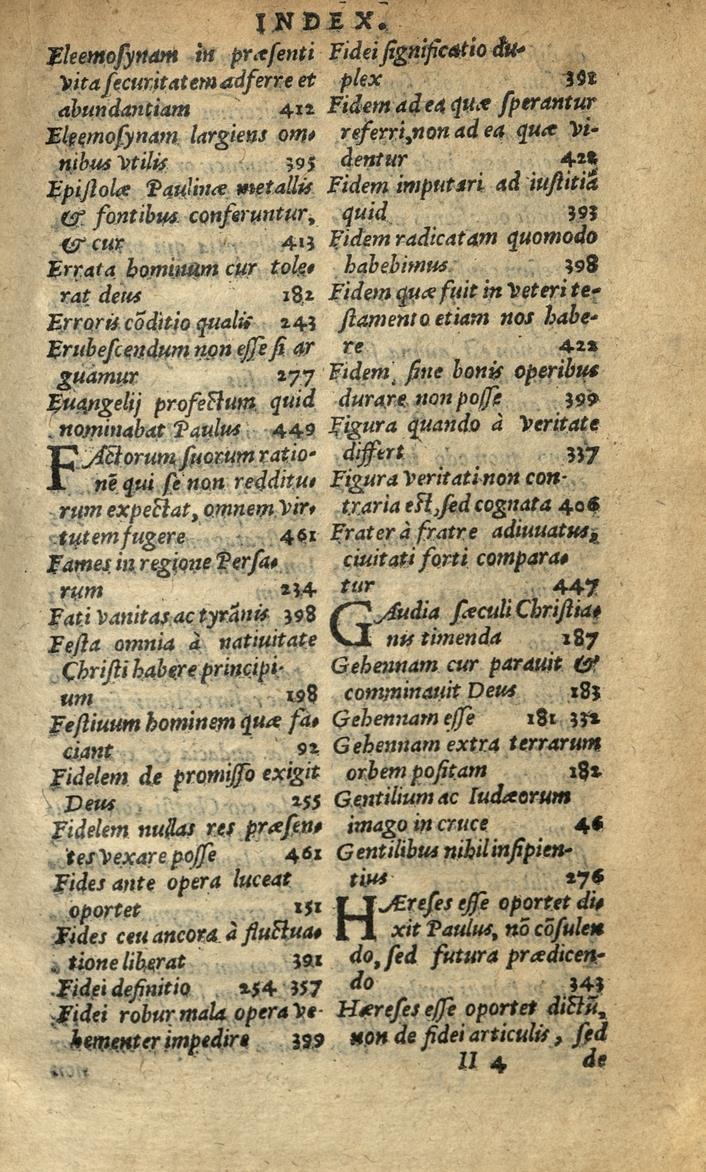 INDEX.
Eleemoſynam in præſenti
vita ſecuritatem adferre et
abundantiam 412
Eleemoſynam largiens om-
nibus vtilis 395
Epiſtolæ Paulinæ metallis
& fontibus conferuntur,
& cur 413
Errata hominum cur tole-
rat deus 182
Erroris cõditio qualis 243
Erubeſcendum non eſſe ſi ar
guamur 277
Euangelij profectum quid
nominabat Paulus 449
FActorum ſuorum ratio-
nẽ qui ſe non redditu-
rum expectat, omnem vir-
tutem fugere 461
Fames in regione Perſa-
rum 234
Fati vanitas ac tyrãnis 398
Feſta omnia à natiuitate
Chriſti habere principi-
um 198
Feſtiuum hominem quæ fa-
ciant 92
Fidelem de promiſſo exigit
Deus 255
Fidelem nullas res præſen-
tes vexare poſſe 461
Fides ante opera luceat
oportet 151
Fides ceu ancora à fluctua-
tione liberat 391
Fidei definitio 254 357
Fidei robur mala opera ve-
hementer impedire 399
Fidei ſignificatio du-
plex 391
Fidem ad ea quæ ſperantur
referri, non ad ea quæ vi-
dentur 422
Fidem imputari ad iuſtitiã
quid 393
Fidem radicatam quomodo
habebimus 398
Fidem quæ fuit in veteri te-
ſtamento etiam nos habe-
re 422
Fidem ſine bonis operibus
durare non poſſe 399
Figura quando à veritate
differt 337
Figura veritati non con-
traria eſt, ſed cognata 406
Frater à fratre adiuuatus,
ciuitati forti compara-
tur 447
GAudia ſæculi Chriſtia-
nis timenda 187
Gehennam cur parauit &
comminauit Deus 183
Gehennam eſſe 181 332
Gehennam extra terrarum
orbem poſitam 182
Gentilium ac Iudæorum
imago in cruce 46
Gentilibus nihil inſipien-
tius 276
HÆreſes eſſe oportet di-
xit Paulus, nõ cõſulen
do, ſed futura prædicen-
do 343
Hæreſes eſſe oportet dictũ,
non de fidei articulis, ſed
II 4 de